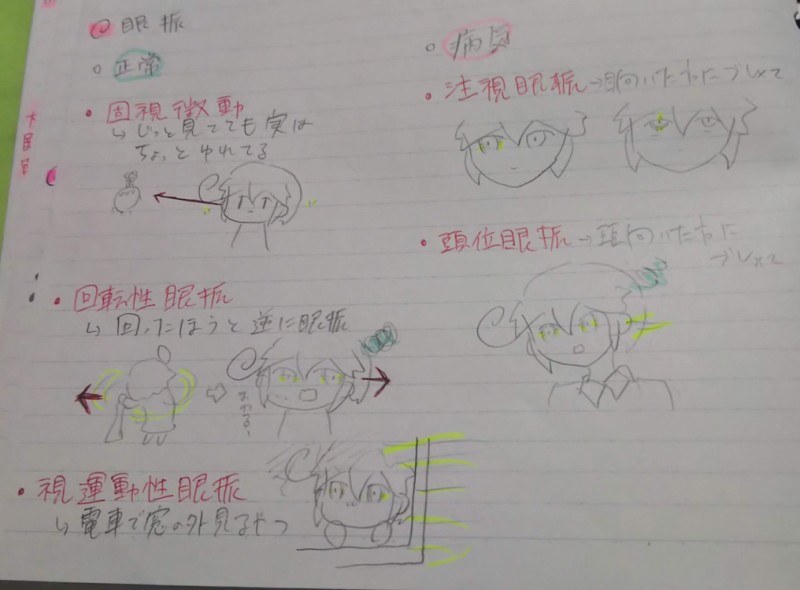 眼振
正常
・固視微動
↳じっと見てても実は
ちょっとゆれてる
・回転性眼振
↳回ったほうと逆に眼振
・視運動性眼振
↳電車で窓の外見るやつ
○病気
・注視眼振→目向いた方にブレてて
・頭位眼振→頭向いた方に
ブレてて